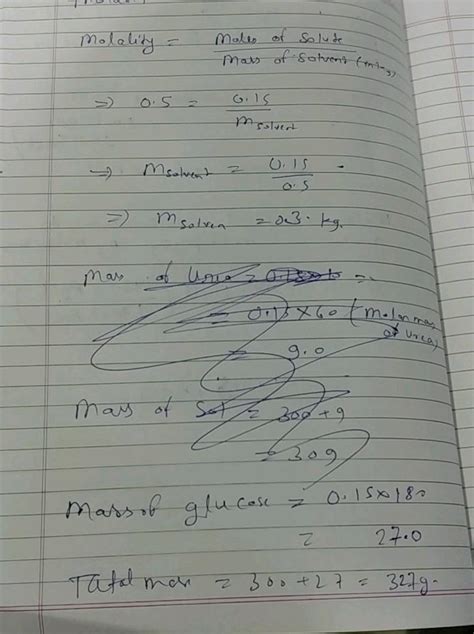 Molality = Moles of Solute / Mass of Solvent (in kg)
=> 0.5 = 0.15 / m solvent
=> m solvent = 0.15 / 0.5
=> m solven = 0.3 kg.
Mass of Urea =
= 0.15 × 60 (Molar mass of Urea)
= 9.0
Mass of Sol = 300 + 9
= 309
Mass of glucose = 0.15 × 180
= 27.0
Total mass = 300 + 27 = 327g.